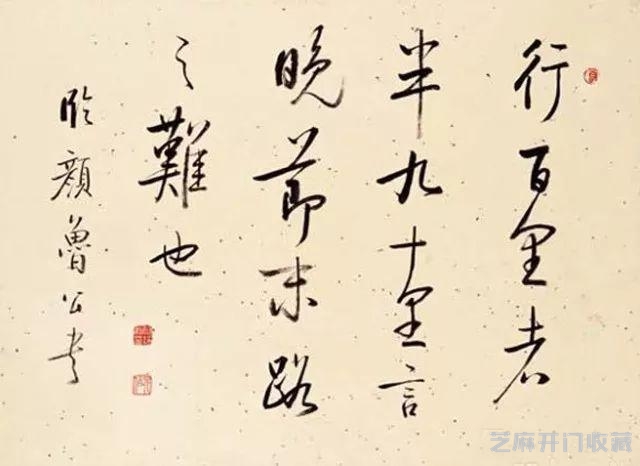 行百里者
半九十里言
晚節末路
之難也
臨顏魯公書
芝麻开门收藏